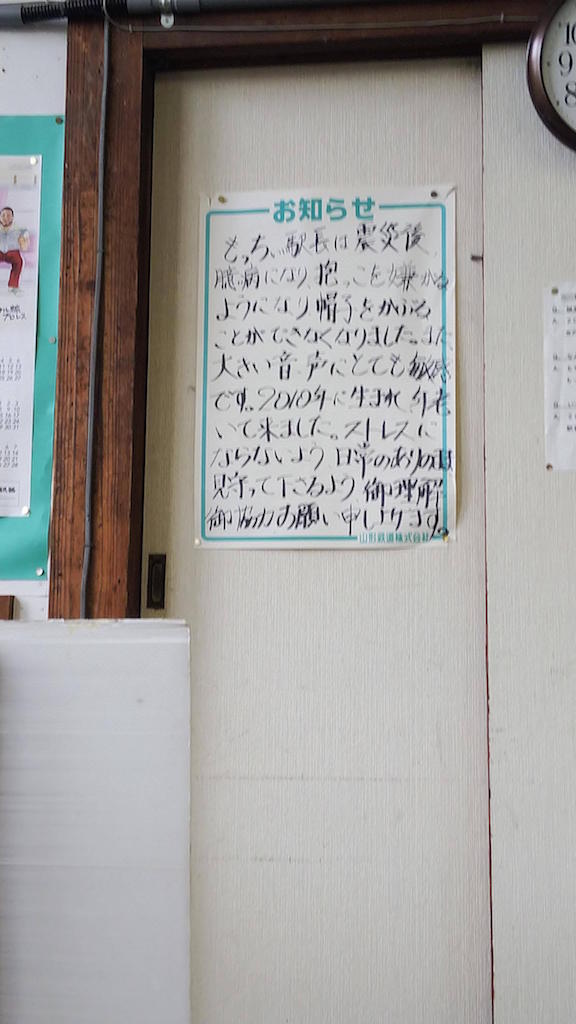 お知らせ
もっちぃ駅長は震災後、
臆病になり、抱っこを嫌がる
ようになり帽子をかぶる
ことができなくなりました。また、
大きい音、声にとても敏感
です。2010年に生まれ年老
いて来ました。ストレスに
ならないよう日常のありのまま
見守って下さるよう御理解
御協力お願い申し上げます。
山形鉄道株式会社
10
9
8
プロレス